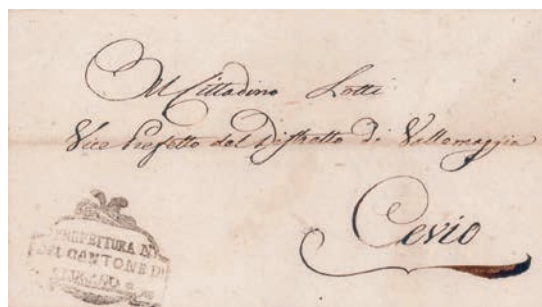 Al Cittadino Lotti
Vice Prefetto del Distretto di Vallemaggia
Cevio
PREFETTURA
DEL CANTONE DI
LUGANO